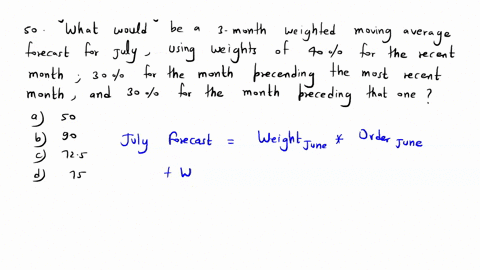 50. "What would" be a 3-month weighted moving average
forecast for July, using weights of 40% for the recent
month, 30% for the month precending the most recent
month, and 30% for the month preceding that one?
a) 50
b) 90
c) 72.5
d) 75
July Forecast = Weight June * Order June
+ W